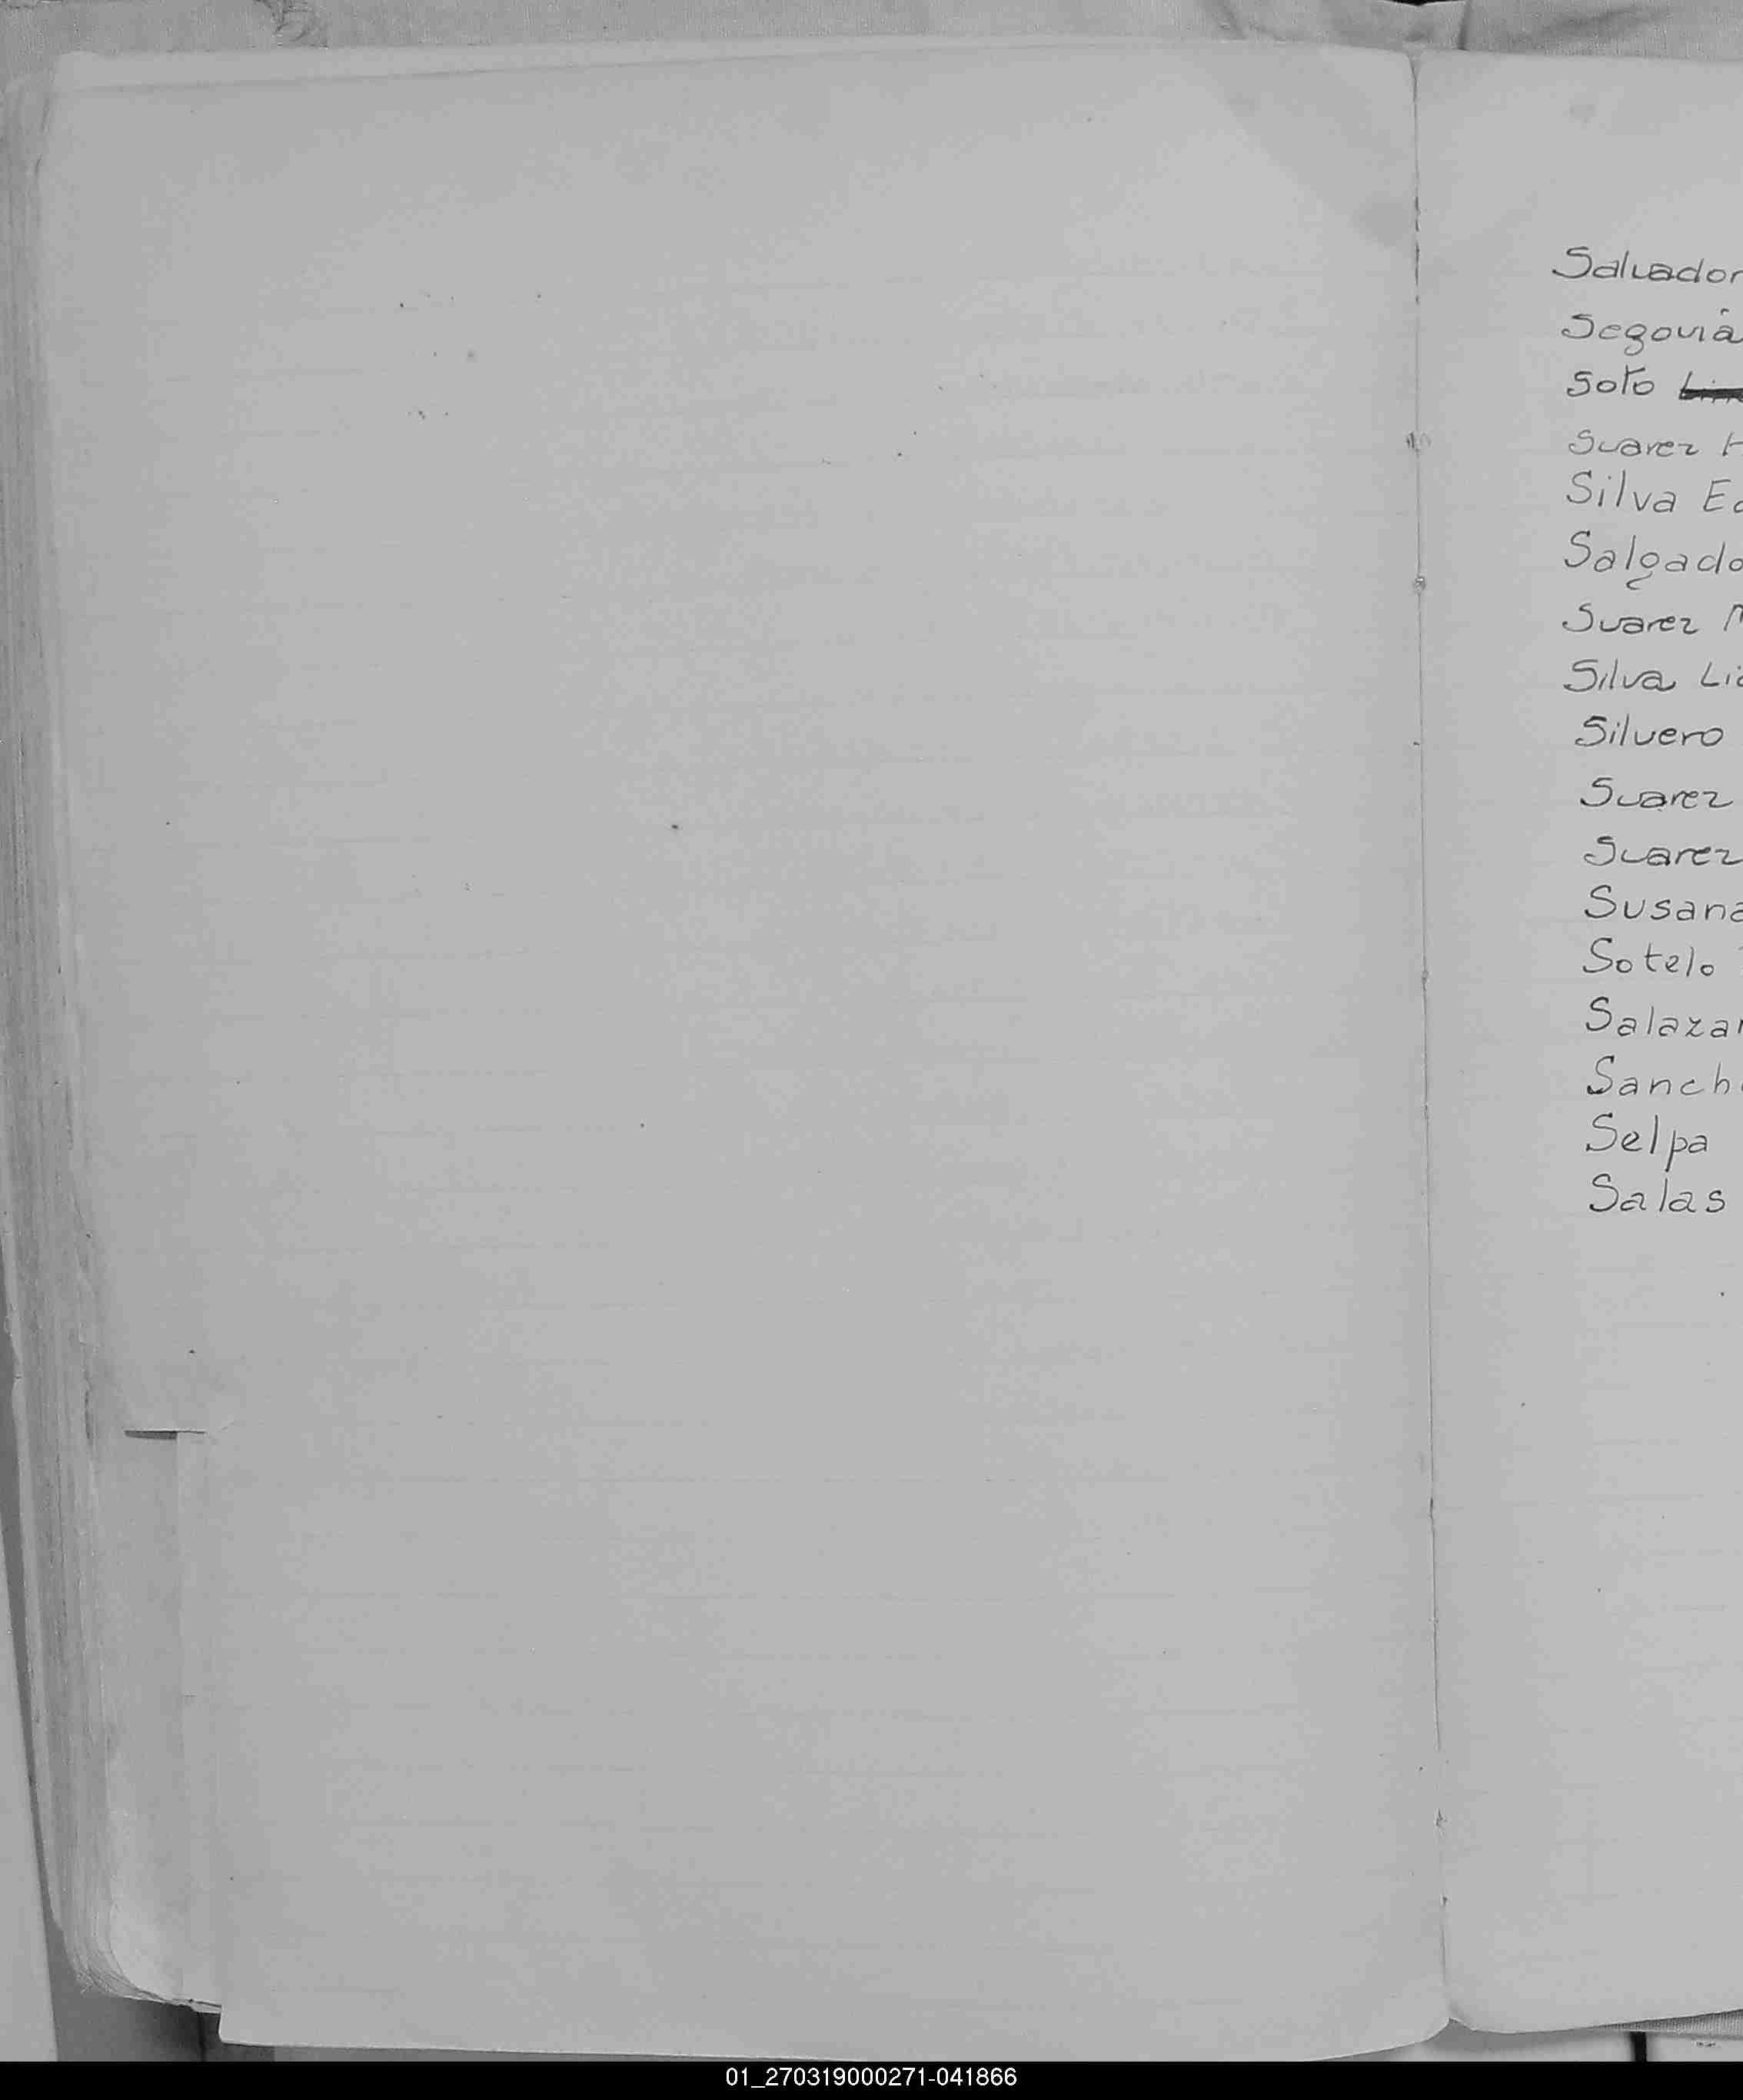 Salvador
Segovia
Soto
Suarez
Silva
Salgado
Suarez
Silva
Silvero
Suarez
Suarez
Susana
Sotelo
Salazar
Sanch
Selpa
Salas
01_270319000271-041866